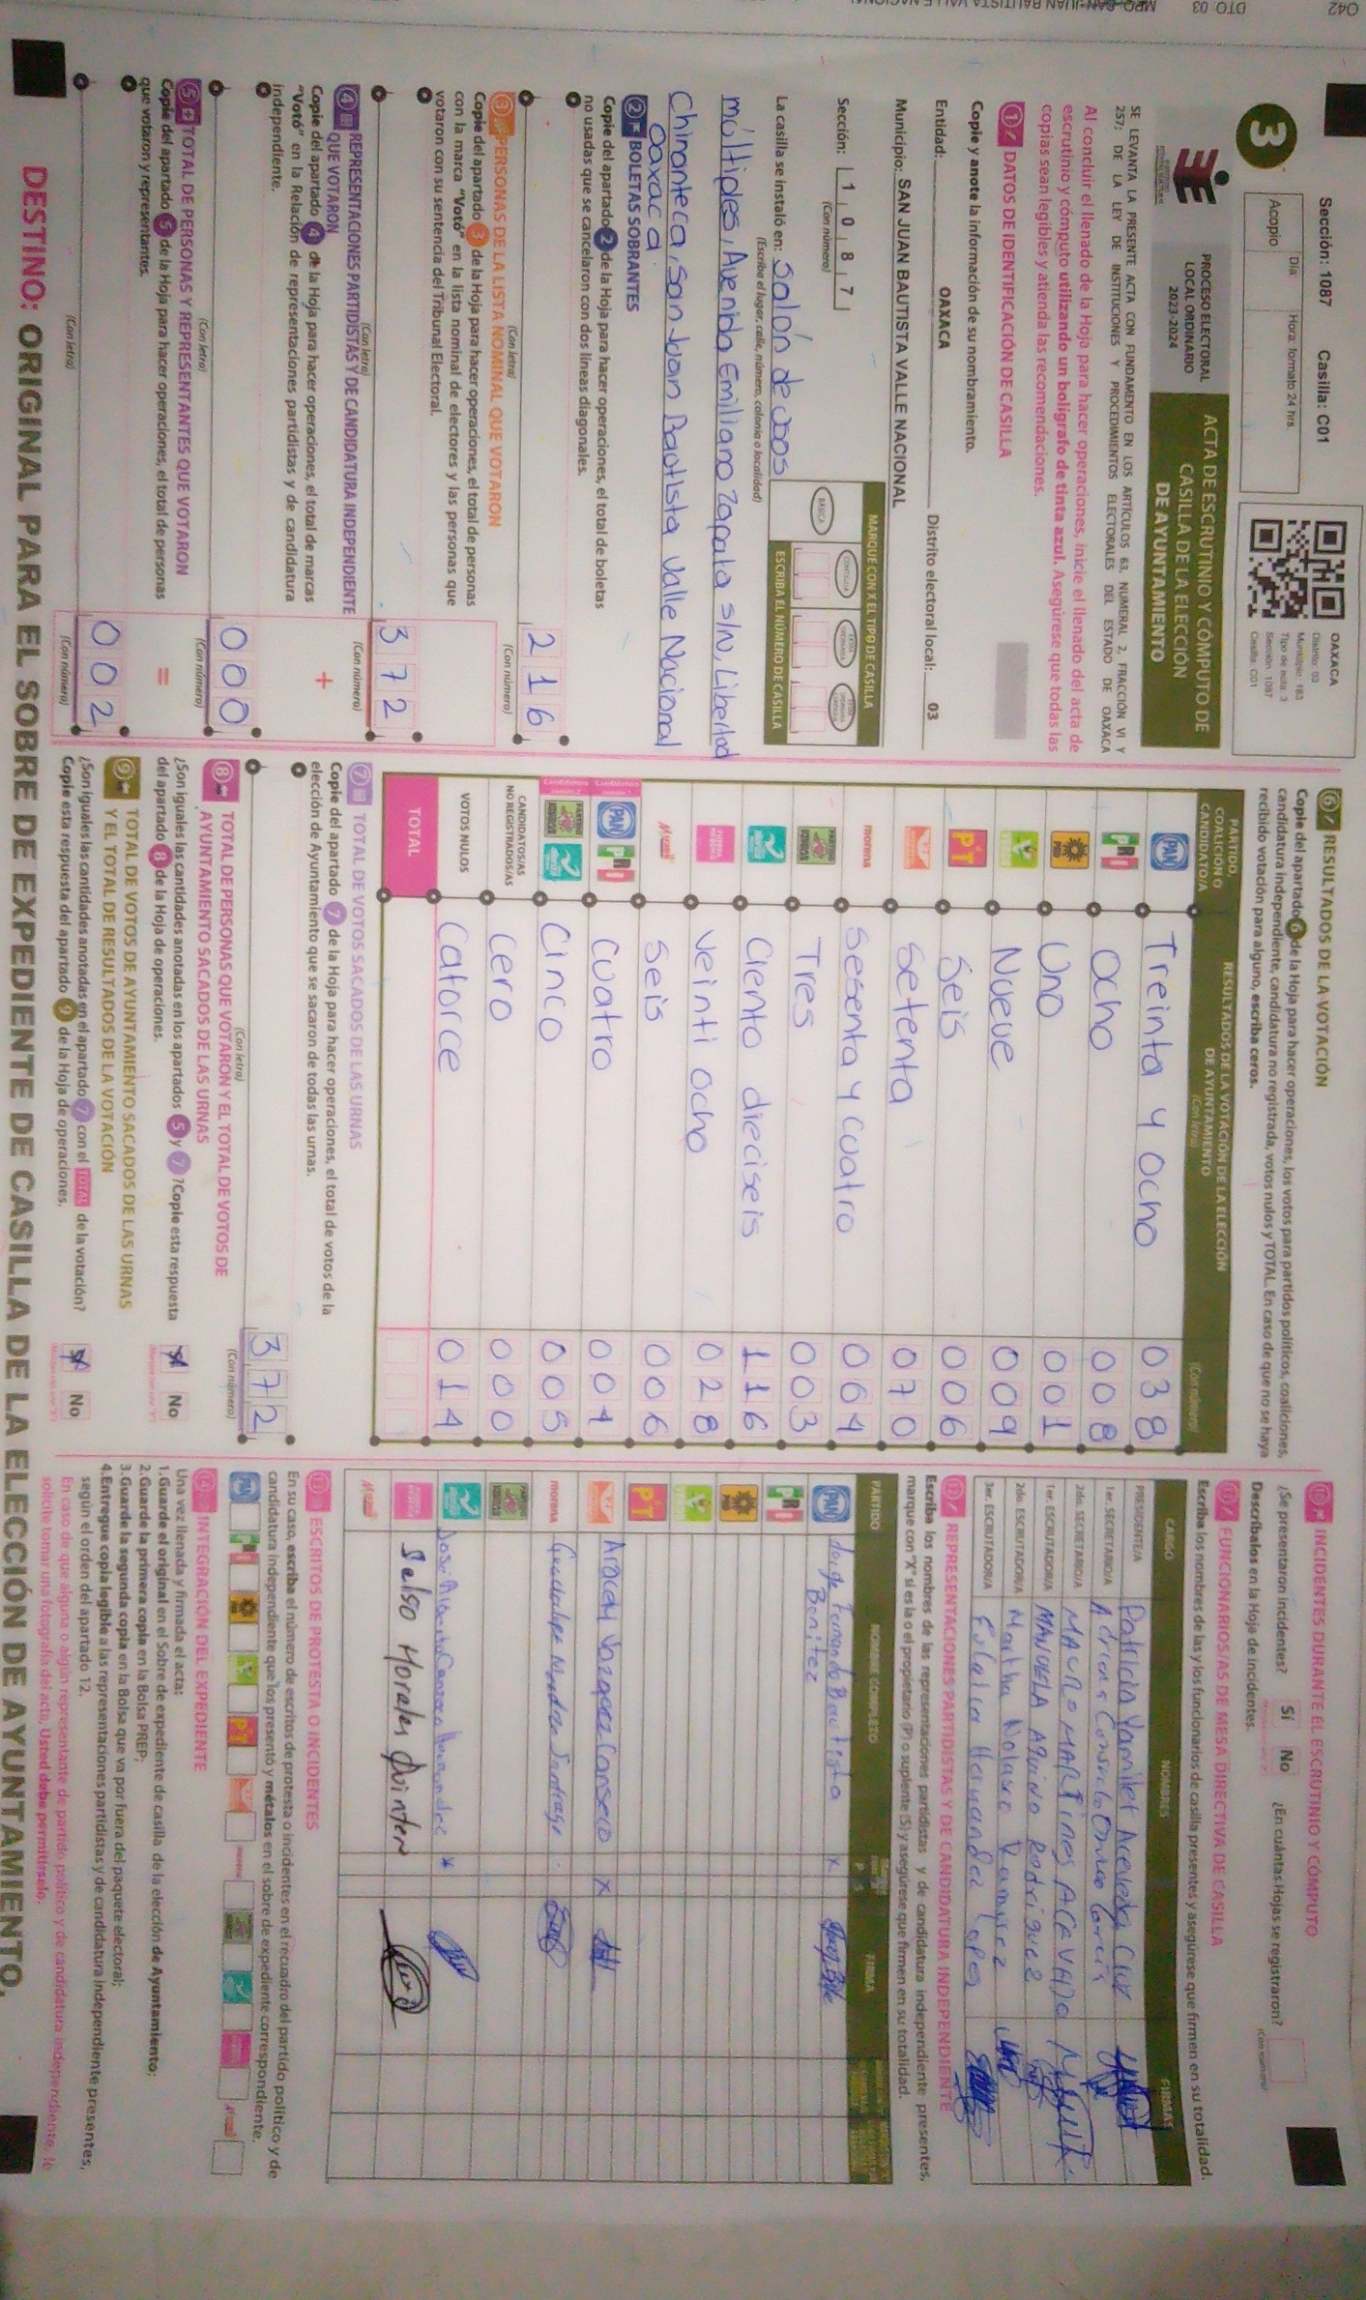 Sección: 1087 Casilla: C01
3
Día Hora: formato 24 hrs.
Acopio
OAXACA
Distrito: 03
Municipio: 183
Tipo de acta: 3
Sección: 1087
Casilla: C01
PROCESO ELECTORAL
LOCAL ORDINARIO
2023-2024
ACTA DE ESCRUTINIO Y CÓMPUTO DE
CASILLA DE LA ELECCIÓN
DE AYUNTAMIENTO
SE LEVANTA LA PRESENTE ACTA CON FUNDAMENTO EN LOS ARTÍCULOS 63, NUMERAL 2, FRACCIÓN VI Y
257; DE LA LEY DE INSTITUCIONES Y PROCEDIMIENTOS ELECTORALES DEL ESTADO DE OAXACA
Al concluir el llenado de la Hoja para hacer operaciones, inicie el llenado del acta de
escrutinio y cómputo utilizando un bolígrafo de tinta azul. Asegúrese que todas las
copias sean legibles y atienda las recomendaciones.
1 DATOS DE IDENTIFICACIÓN DE CASILLA
Copie y anote la información de su nombramiento.
Entidad: OAXACA Distrito electoral local: 03
Municipio: SAN JUAN BAUTISTA VALLE NACIONAL
Sección: 1 0 8 7
(Con número)
MARQUE CON X EL TIPO DE CASILLA
BÁSICA
ESCRIBA EL NÚMERO DE CASILLA
La casilla se instaló en: Salón de usos
(Escriba el lugar, calle, número, colonia o localidad)
múltiples, Avenida Emiliano Zapata S/N, Libertad
Chinanteca, San Juan Bautista Valle Nacional
Oaxaca.
2 BOLETAS SOBRANTES
Copie del apartado 2 de la Hoja para hacer operaciones, el total de boletas
no usadas que se cancelaron con dos líneas diagonales.
216
(Con letra) (Con número)
3 PERSONAS DE LA LISTA NOMINAL QUE VOTARON
Copie del apartado 3 de la Hoja para hacer operaciones, el total de personas
con la marca "Votó" en la lista nominal de electores y las personas que
votaron con su sentencia del Tribunal Electoral.
372
(Con letra) (Con número)
4 REPRESENTACIONES PARTIDISTAS Y DE CANDIDATURA INDEPENDIENTE
QUE VOTARON
Copie del apartado 4 de la Hoja para hacer operaciones, el total de marcas
"Votó" en la Relación de representaciones partidistas y de candidatura
independiente.
+
000
(Con letra) (Con número)
5 TOTAL DE PERSONAS Y REPRESENTANTES QUE VOTARON
Copie del apartado 5 de la Hoja para hacer operaciones, el total de personas
que votaron y representantes.
=
002
(Con letra) (Con número)
6 RESULTADOS DE LA VOTACIÓN
Copie del apartado 6 de la Hoja para hacer operaciones, los votos para partidos políticos, coaliciones,
candidatura independiente, candidatura no registrada, votos nulos y TOTAL. En caso de que no se haya
recibido votación para alguno, escriba ceros.
PARTIDO, COALICIÓN O CANDIDATO/A
RESULTADOS DE LA VOTACIÓN DE LA ELECCIÓN DE AYUNTAMIENTO
(Con letra) (Con número)
PAN Treinta y Ocho 038
PRI Ocho 008
PRD Uno 001
Nueve 009
PT Seis 006
Setenta 070
morena Sesenta y Cuatro 064
Tres 003
Ciento dieciseis 116
Veinti ocho 028
Seis 006
PAN PRI Cuatro 004
Cinco 005
CANDIDATOS/AS NO REGISTRADOS/AS Cero 000
VOTOS NULOS Catorce 014
TOTAL
7 TOTAL DE VOTOS SACADOS DE LAS URNAS
Copie del apartado 7 de la Hoja para hacer operaciones, el total de votos de la
elección de Ayuntamiento que se sacaron de todas las urnas.
372
(Con letra) (Con número)
8 TOTAL DE PERSONAS QUE VOTARON Y EL TOTAL DE VOTOS DE
AYUNTAMIENTO SACADOS DE LAS URNAS
¿Son iguales las cantidades anotadas en los apartados 5 y 7 ? Copie esta respuesta
del apartado 8 de la Hoja de operaciones. No
9 TOTAL DE VOTOS DE AYUNTAMIENTO SACADOS DE LAS URNAS
Y EL TOTAL DE RESULTADOS DE LA VOTACIÓN
¿Son iguales las cantidades anotadas en el apartado 7 con el TOTAL de la votación?
Copie esta respuesta del apartado 9 de la Hoja de operaciones. No
10 INCIDENTES DURANTE EL ESCRUTINIO Y CÓMPUTO
¿Se presentaron incidentes? Sí No ¿En cuántas Hojas se registraron?
(Con número)
Descríbalos en la Hoja de incidentes.
11 FUNCIONARIOS/AS DE MESA DIRECTIVA DE CASILLA
Escriba los nombres de las y los funcionarios de casilla presentes y asegúrese que firmen en su totalidad.
CARGO NOMBRES FIRMAS
PRESIDENTE/A Patricia Yamilet Acevedo Cruz
1er. SECRETARIO/A Adriana Consuelo García
2do. SECRETARIO/A MAURO MARTINEZ ACEVEDO
1er. ESCRUTADOR/A MANUELA AQUINO Rodriguez
2do. ESCRUTADOR/A Martha Nolasco Ramirez
3er. ESCRUTADOR/A Eulalia Hernandez Lopez
12 REPRESENTACIONES PARTIDISTAS Y DE CANDIDATURA INDEPENDIENTE
Escriba los nombres de las representaciones partidistas y de candidatura independiente presentes,
marque con "X" si es la o el propietario (P) o suplente (S) y asegúrese que firmen en su totalidad.
PARTIDO NOMBRE COMPLETO P S FIRMA
PAN Jorge Fernando Bautista x
Benitez
PRI
PRD
PT
Aracely Vazquez Canseco X
morena Guadalupe Mendoza Santiago
José Alberto
Selso Morales Quintero
13 ESCRITOS DE PROTESTA O INCIDENTES
En su caso, escriba el número de escritos de protesta o incidentes en el recuadro del partido político y de
candidatura independiente que los presentó y métalos en el sobre de expediente correspondiente.
14 INTEGRACIÓN DEL EXPEDIENTE
Una vez llenada y firmada el acta:
1.Guarde el original en el Sobre de expediente de casilla de la elección de Ayuntamiento;
2.Guarde la primera copia en la Bolsa PREP;
3.Guarde la segunda copia en la Bolsa que va por fuera del paquete electoral;
4.Entregue copia legible a las representaciones partidistas y de candidatura independiente presentes,
según el orden del apartado 12.
En caso de que alguna o algún representante de partido político y de candidatura independiente, le
solicite tomar una fotografía del acta, Usted debe permitírselo.
DESTINO: ORIGINAL PARA EL SOBRE DE EXPEDIENTE DE CASILLA DE LA ELECCIÓN DE AYUNTAMIENTO.